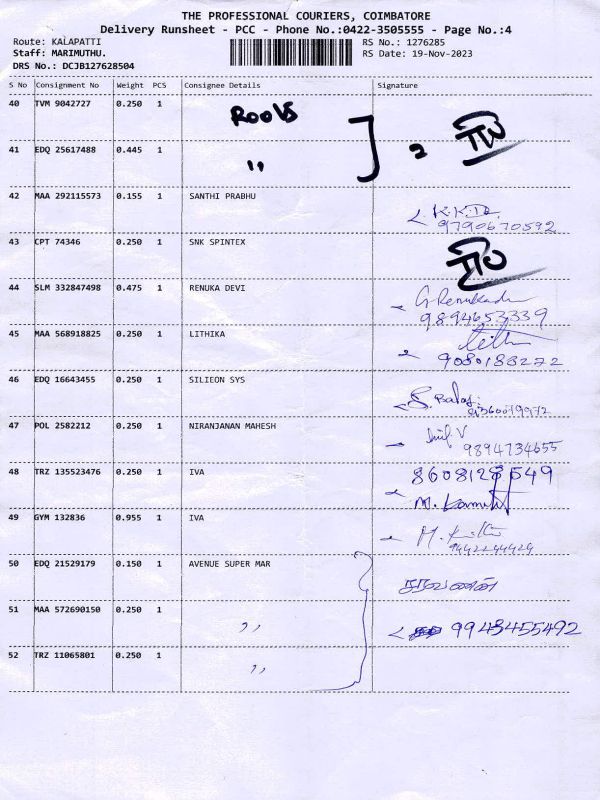 THE PROFESSIONAL COURIERS, COIMBATORE
Delivery Runsheet - PCC - Phone No.:0422-3505555 - Page No.:4
Route: KALAPATTI
RS No.: 1276285
Staff: MARIMUTHU.
RS Date: 19-Nov-2023
DRS No.: DCJB127628504
S No Consignment No Weight PCS Consignee Details Signature
40 TVM 9042727 0.250 1
41 EDQ 25617488 0.445 1 ,,
42 MAA 292115573 0.155 1 SANTHI PRABHU
9790670592
43 CPT 74346 0.250 1 SNK SPINTEX
44 SLM 332847498 0.475 1 RENUKA DEVI G Renukadevi
9894653339
45 MAA 568918825 0.250 1 LITHIKA
9080188272
46 EDQ 16643455 0.250 1 SILIEON SYS S. Balaji
9360019972
47 POL 2582212 0.250 1 NIRANJANAN MAHESH
9894734655
48 TRZ 135523476 0.250 1 IVA 8608128549
49 GYM 132836 0.955 1 IVA
50 EDQ 21529179 0.150 1 AVENUE SUPER MAR சரவணன்
51 MAA 572690150 0.250 1 ,, 9943455492
52 TRZ 11065801 0.250 1 ,,